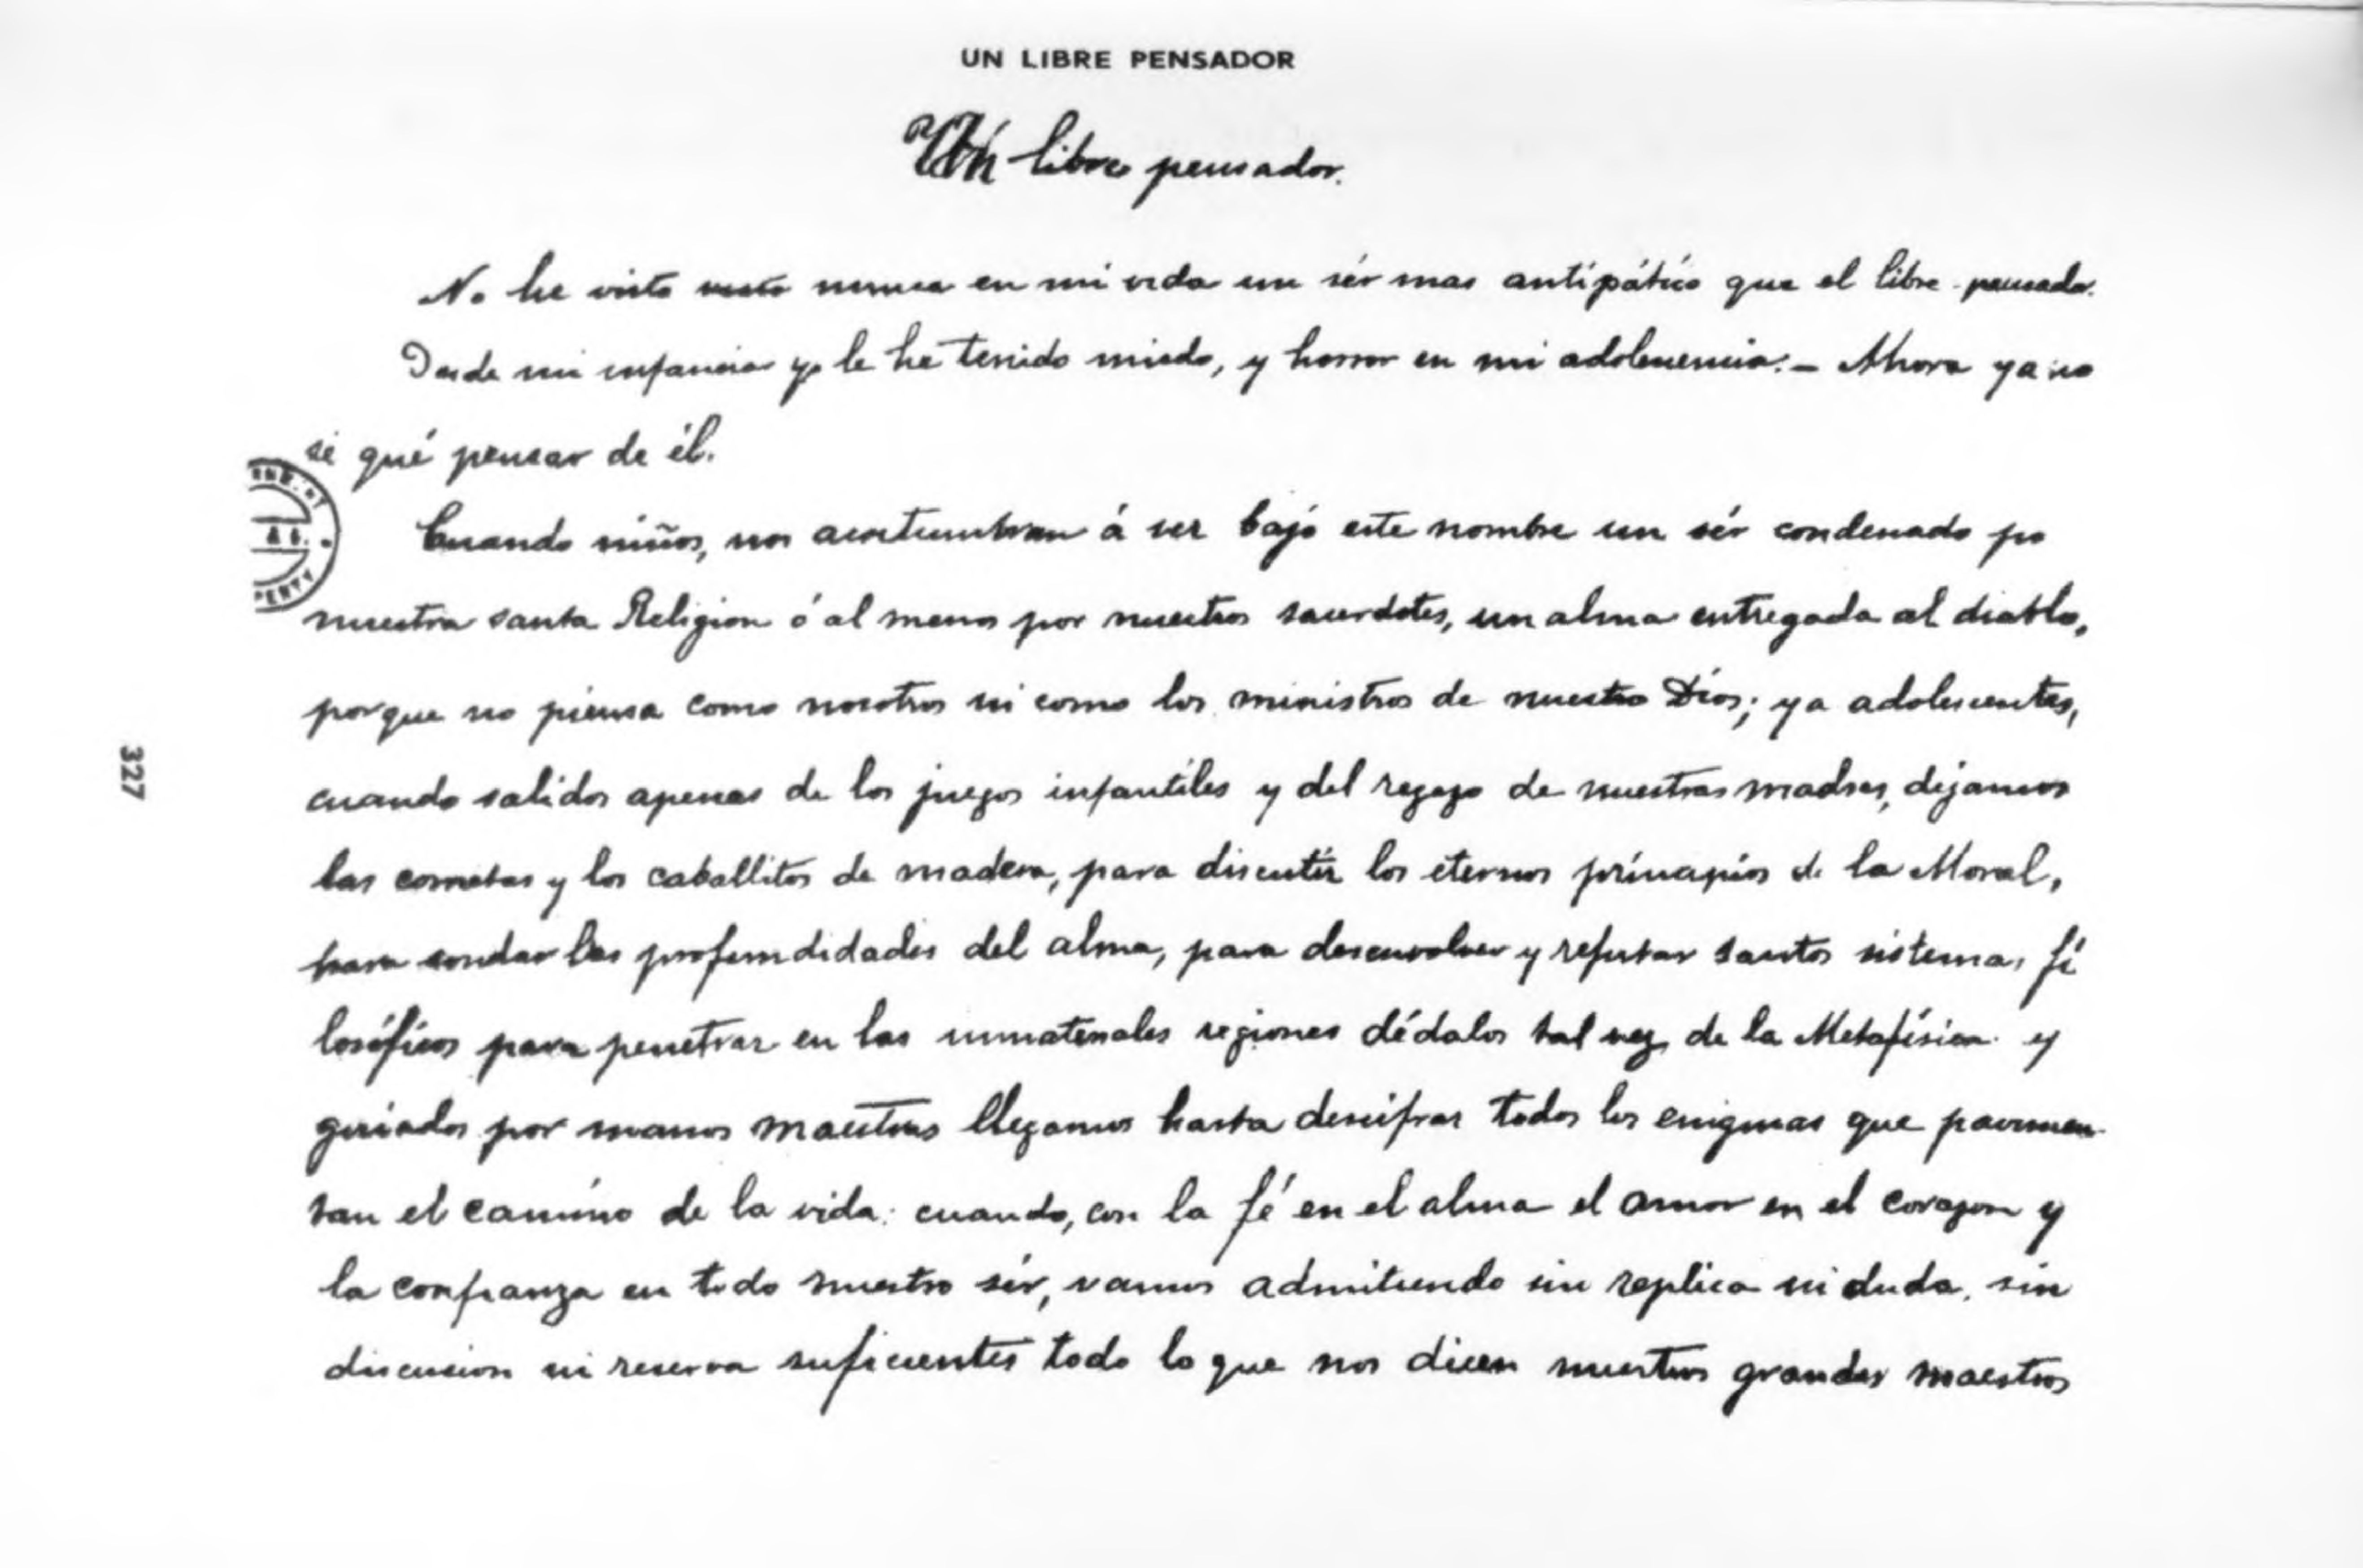 UN LIBRE PENSADOR
Un libre pensador.
No he visto nunca en mi vida un sér mas antipático que el libre-pensador.
Desde mi infancia yo le he tenido miedo, y horror en mi adolescencia. — Ahora ya no
sé qué pensar de él.
Cuando niños, nos acostumbran á ver bajo este nombre un sér condenado po
nuestra santa Religion ó al menos por nuestros sacerdotes, un alma entregada al diablo,
porque no piensa como nosotros ni como los ministros de nuestro Dios; ya adolescentes,
cuando salidos apenas de los juegos infantiles y del regazo de nuestras madres, dejamos
las cometas y los caballitos de madera, para discutir los eternos principios de la Moral,
para sondar las profundidades del alma, para desenvolver y refutar tantos sistemas fi
losóficos para penetrar en las inmateriales regiones dédalos tal vez de la Metafísica y
guiados por manos maestras llegamos hasta descifrar todos los enigmas que pavimen-
tan el camino de la vida; cuando, con la fé en el alma el amor en el corazon y
la confianza en todo nuestro sér, vamos admitiendo sin replica ni duda, sin
discusion ni reserva suficientes todo lo que nos dicen nuestros grandes maestros
327